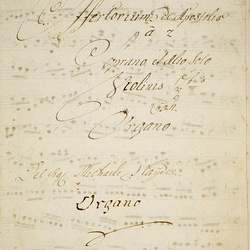 Offertorium de Apostolis
a 2
Soprano et Alto Solo
Violinis
Organo
Del Sigr. Michaele Hayden
Organo